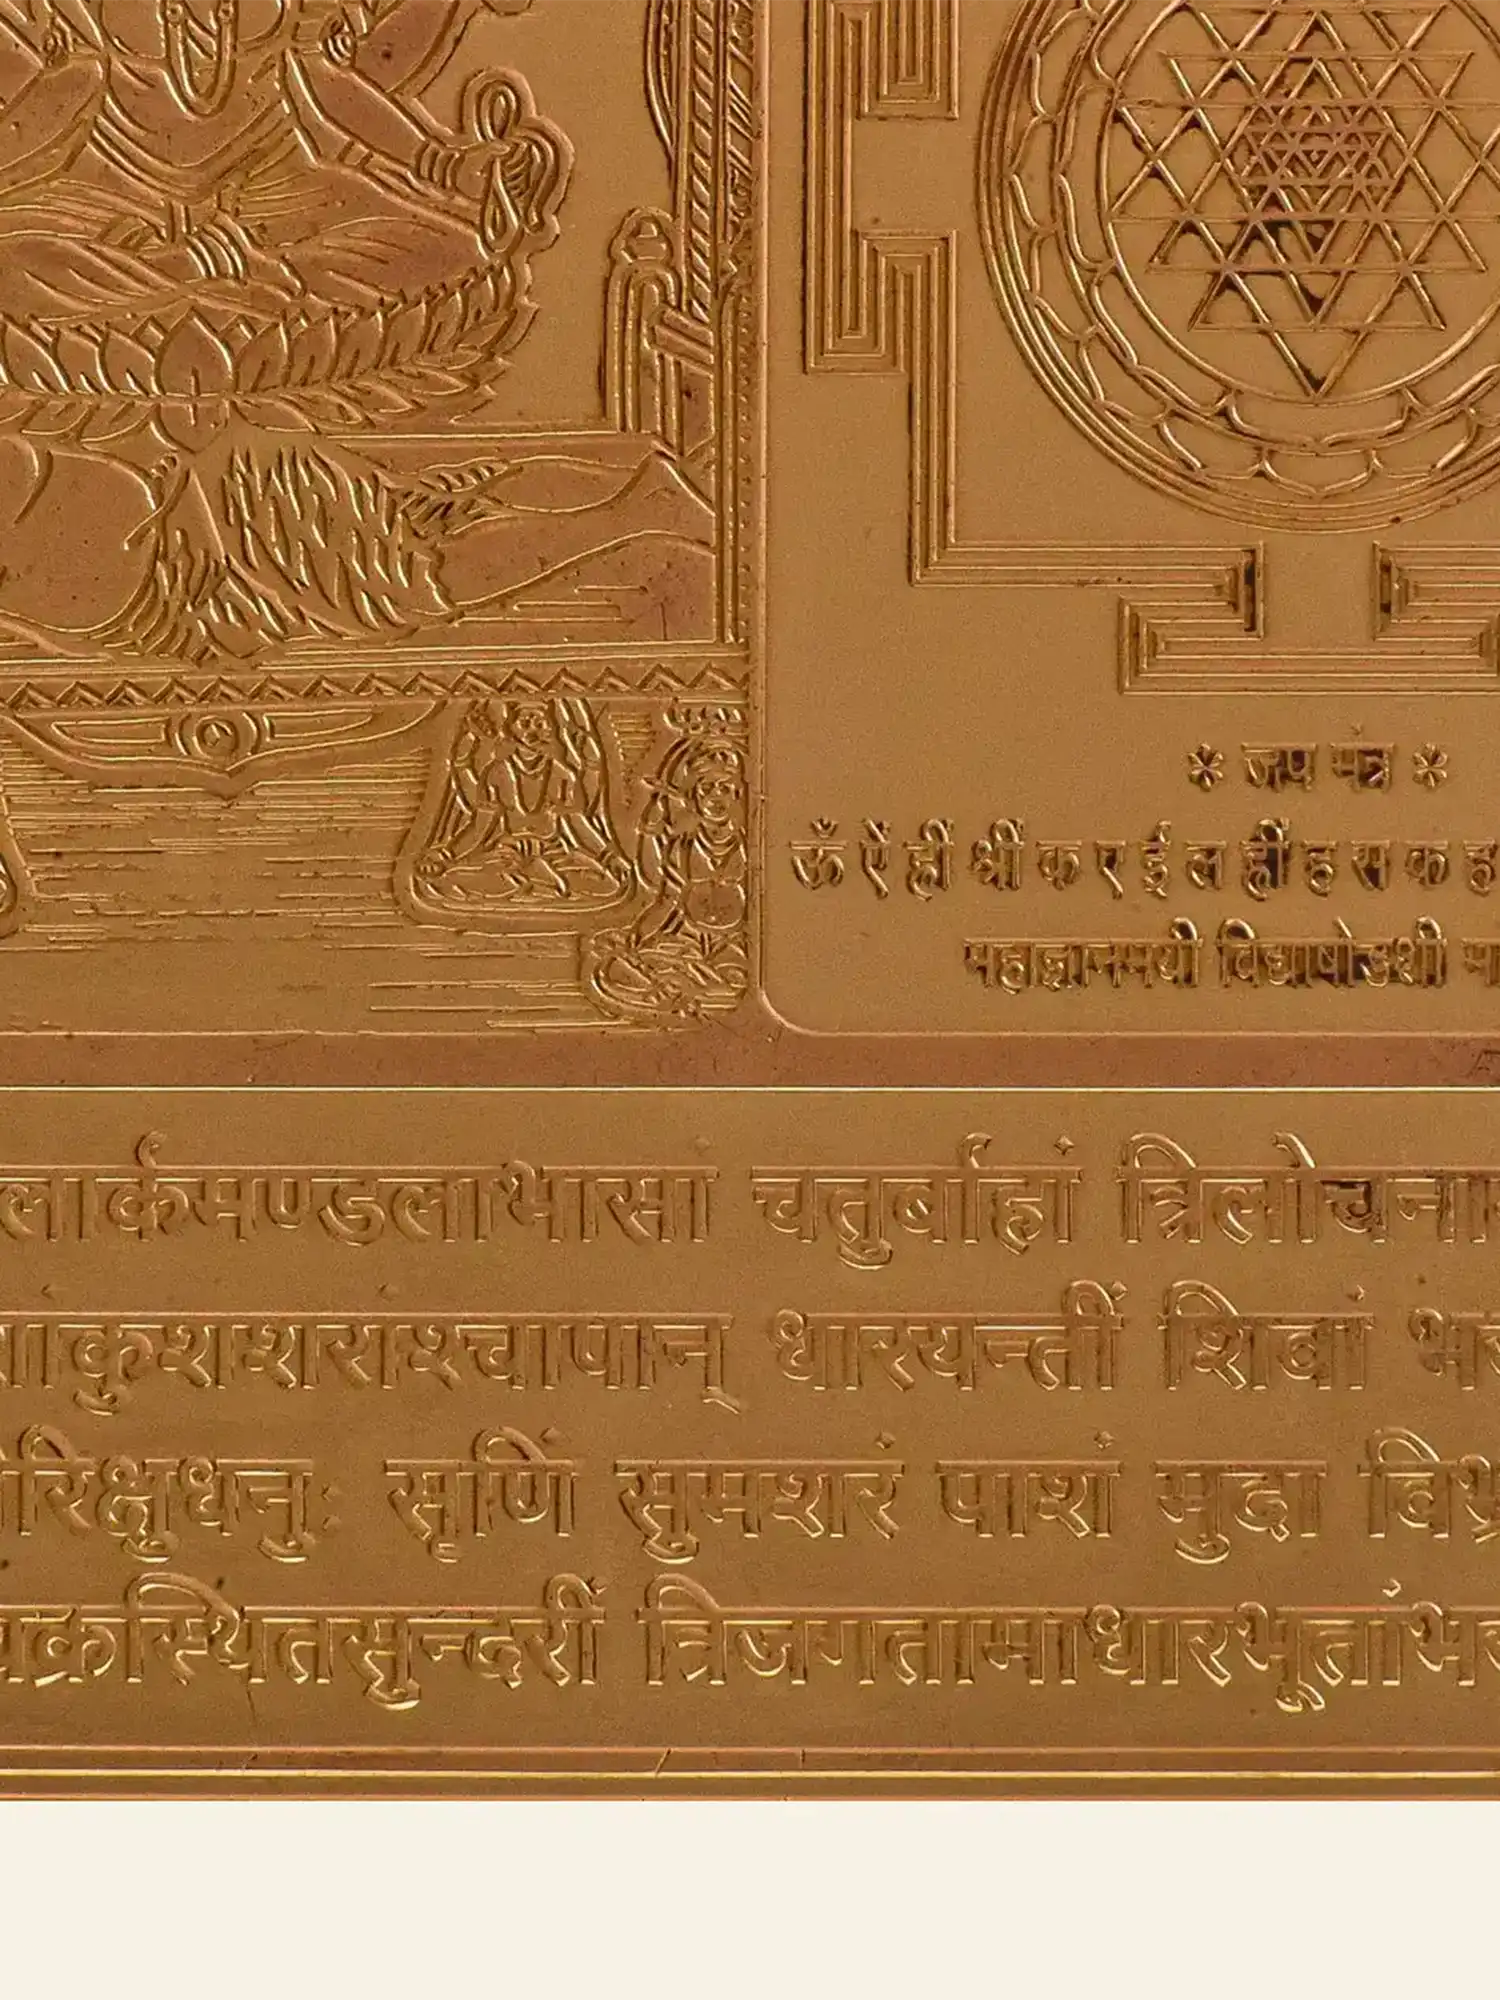 * जप मंत्र *
ॐ ऐं ह्रीं श्रीं क ए ई ल ह्रीं ह स क ह
महाज्ञानमयी विद्याषोडशी मा
लार्कमण्डलाभासां चतुर्बाहां त्रिलोचना
ाकुशशराश्चापान् धारयन्तीं शिवां भ
रिक्षुधनुः सृणिं सुमशरं पाशं मुदा विभ्र
क्रस्थितसुन्दरीं त्रिजगतामाधारभूतांभ